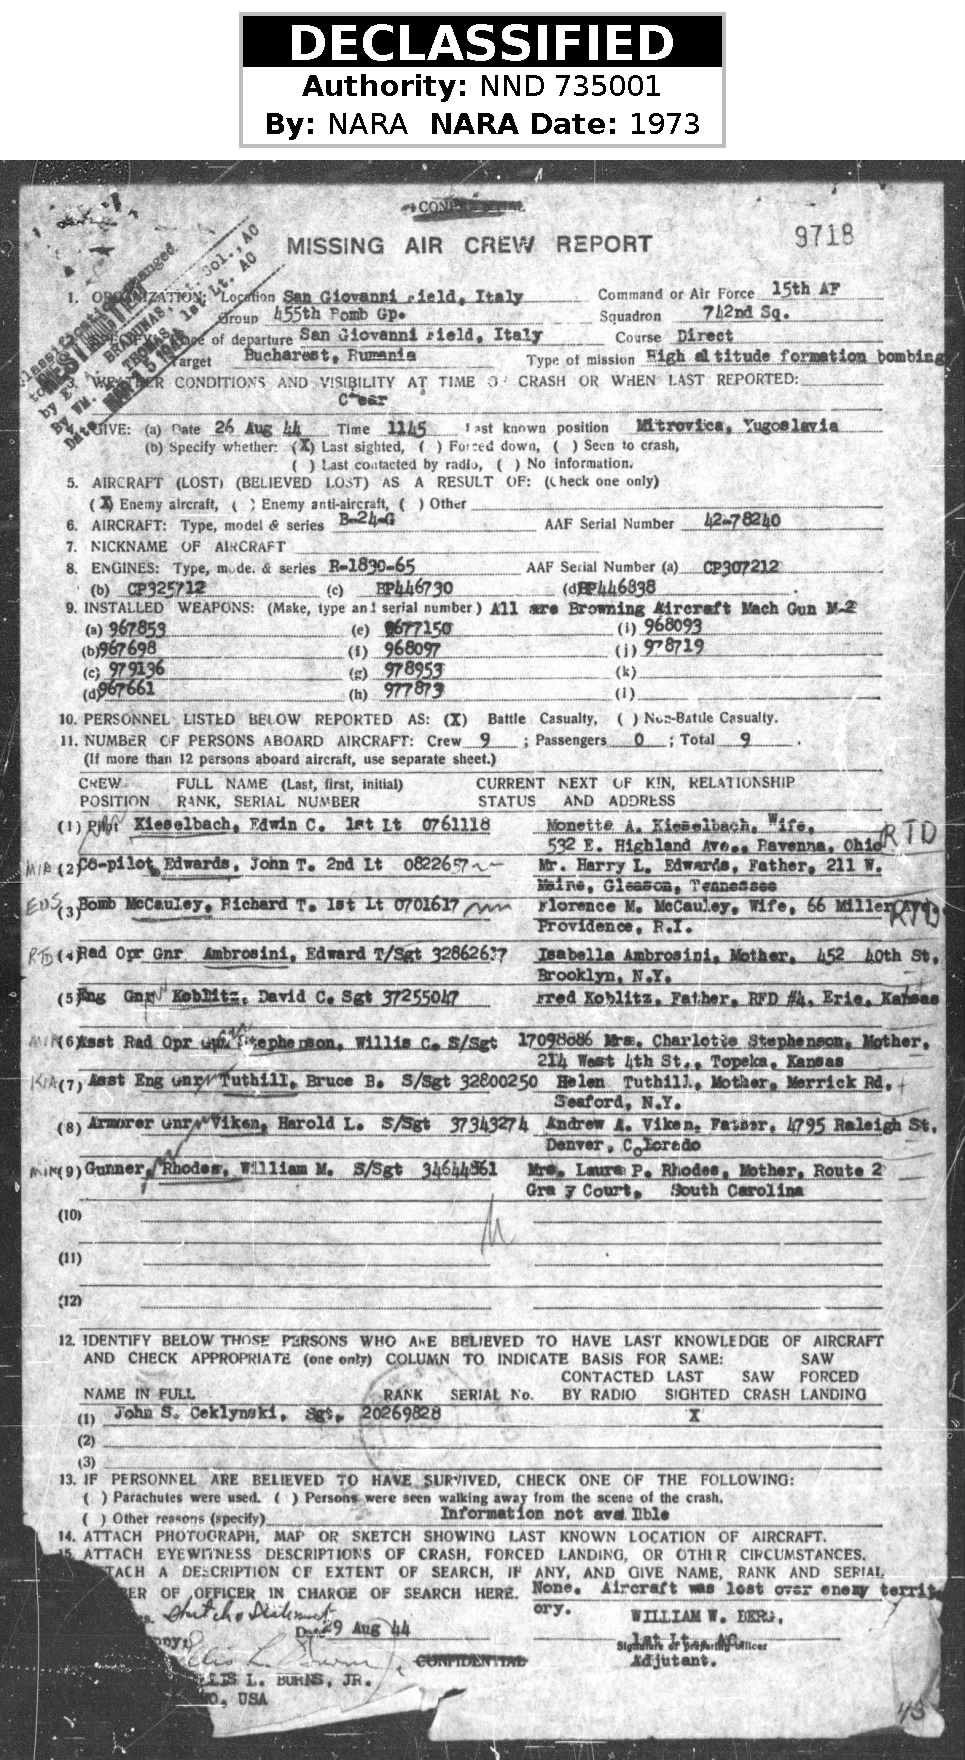 DECLASSIFIED
Authority: NND 735001
By: NARA NARA Date: 1973
MISSING AIR CREW REPORT
9718
1. ORGANIZATION: Location San Giovanni Field, Italy Command or Air Force 15th AF
Group 455th Bomb Gp. Squadron 742nd Sq.
of departure San Giovanni Field, Italy Course Direct
Target Bucharest, Rumania Type of mission High altitude formation bombing
3. WEATHER CONDITIONS AND VISIBILITY AT TIME OF CRASH OR WHEN LAST REPORTED:
Clear
GIVE: (a) Date 26 Aug 44 Time 1145 Last known position Mitrovica, Yugoslavia
(b) Specify whether: (X) Last sighted, ( ) Forced down, ( ) Seen to crash,
( ) Last contacted by radio, ( ) No information.
5. AIRCRAFT (LOST) (BELIEVED LOST) AS A RESULT OF: (Check one only)
(X) Enemy aircraft, ( ) Enemy anti-aircraft, ( ) Other
6. AIRCRAFT: Type, model & series B-24-G AAF Serial Number 42-78240
7. NICKNAME OF AIRCRAFT
8. ENGINES: Type, model & series R-1830-65 AAF Serial Number (a) CP307212
(b) CP325712 (c) BP446730 (d) BP446838
9. INSTALLED WEAPONS: (Make, type and serial number) All are Browning Aircraft Mach Gun M-2
(a) 967853 (e) 677150 (i) 968093
(b) 967698 (f) 968097 (j) 978719
(c) 979196 (g) 978953 (k)
(d) 967661 (h) 977873 (l)
10. PERSONNEL LISTED BELOW REPORTED AS: (X) Battle Casualty, ( ) Non-Battle Casualty.
11. NUMBER OF PERSONS ABOARD AIRCRAFT: Crew 9 ; Passengers 0 ; Total 9 .
(If more than 12 persons aboard aircraft, use separate sheet.)
CREW FULL NAME (Last, first, initial) CURRENT NEXT OF KIN, RELATIONSHIP
POSITION RANK, SERIAL NUMBER STATUS AND ADDRESS
(1) Pilot Kieselbach, Edwin C. 1st Lt 0761118 Monette A. Kieselbach, Wife,
532 E. Highland Ave., Ravenna, Ohio RTD
(2) Co-pilot Edwards, John T. 2nd Lt 0822657 Mr. Harry L. Edwards, Father, 211 W.
Maine, Gleason, Tennessee
EUS (3) Bomb McCauley, Richard T. 1st Lt 0701617 Florence M. McCauley, Wife, 66 Miller Ave. RTD
Providence, R.I.
RTD (4) Rad Opr Gnr Ambrosini, Edward T/Sgt 32862637 Isabella Ambrosini, Mother, 452 40th St,
Brooklyn, N.Y.
(5) Eng Gnr Koblitz, David C. Sgt 37255047 Fred Koblitz, Father, RFD #4, Erie, Kansas
(6) Asst Rad Opr Gnr Stephenson, Willis C. S/Sgt 17098686 Mrs. Charlotte Stephenson, Mother,
214 West 4th St., Topeka, Kansas
KIA (7) Asst Eng Gnr Tuthill, Bruce B. S/Sgt 32800250 Helen Tuthill, Mother, Merrick Rd,
Seaford, N.Y.
(8) Armorer Gnr Viken, Harold L. S/Sgt 37343274 Andrew A. Viken, Father, 4795 Raleigh St,
Denver, Colorado
(9) Gunner, Rhodes, William M. S/Sgt 34644861 Mrs. Laura P. Rhodes, Mother, Route 2
Gray Court, South Carolina
(10)
(11)
(12)
12. IDENTIFY BELOW THOSE PERSONS WHO ARE BELIEVED TO HAVE LAST KNOWLEDGE OF AIRCRAFT
AND CHECK APPROPRIATE (one only) COLUMN TO INDICATE BASIS FOR SAME: SAW
CONTACTED LAST SAW FORCED
NAME IN FULL RANK SERIAL No. BY RADIO SIGHTED CRASH LANDING
(1) John S. Ceklynski, Sgt. 20269828 X
(2)
(3)
13. IF PERSONNEL ARE BELIEVED TO HAVE SURVIVED, CHECK ONE OF THE FOLLOWING:
( ) Parachutes were used. ( ) Persons were seen walking away from the scene of the crash.
( ) Other reasons (specify) Information not available
14. ATTACH PHOTOGRAPH, MAP OR SKETCH SHOWING LAST KNOWN LOCATION OF AIRCRAFT.
15. ATTACH EYEWITNESS DESCRIPTIONS OF CRASH, FORCED LANDING, OR OTHER CIRCUMSTANCES.
TACH A DESCRIPTION OF EXTENT OF SEARCH, IF ANY, AND GIVE NAME, RANK AND SERIAL
BER OF OFFICER IN CHARGE OF SEARCH HERE. None. Aircraft was lost over enemy territ
ory.
WILLIAM W. BERG,
Date 29 Aug 44
1st Lt., AC
Signature of preparing officer
CONFIDENTIAL
Adjutant.
LIS L. BURNS, JR.
O, USA
43